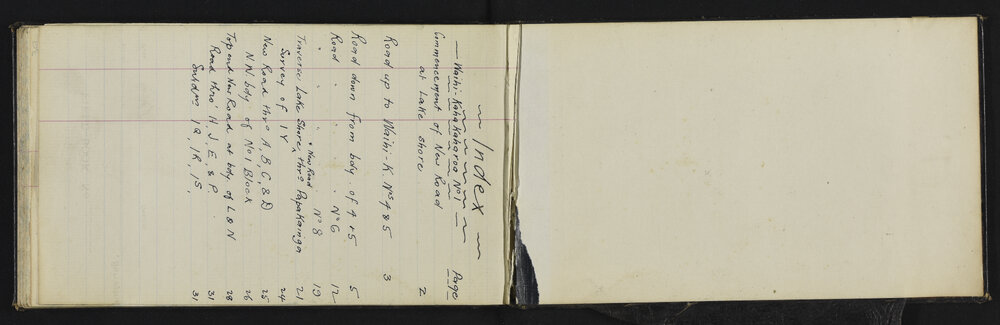 Index
Waihi-Kahakaharoa No 1
Page
Commencement of New Road
at Lake Shore 2
Road up to Waihi-K Nos 4 & 5 3
Road down from bdy. of 4 & 5 5
Road " " . No 6 12
" " " No 8 19
Traverse Lake Shore & New Road thro Papakainga 21
Survey of 1Y 24
New Road thro A, B, C, & D 25
N.W. bdy of No 1 Block 26
Top end New Road at bdy of L & N 28
Road thro' H, J, E, & P. 31
Subdns 1Q, 1R, 1S. 31